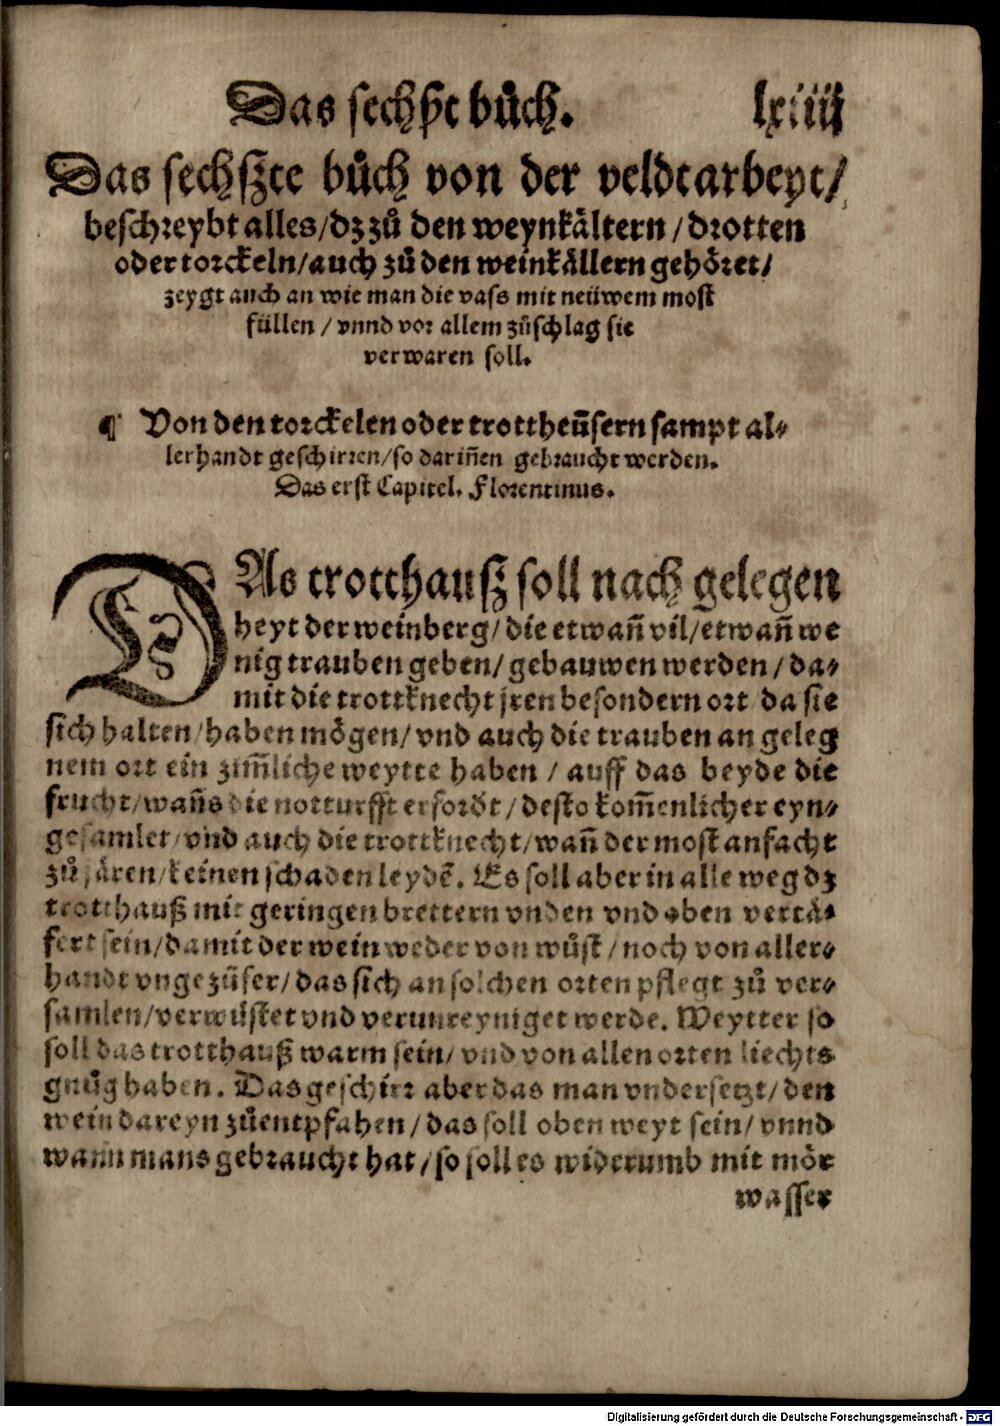 Das sechßt bůch. lxiiij
Das sechßte bůch von der veldtarbeyt/
beschreybt alles/dz zů den weynkältern/drotten
oder torckeln/auch zů den weinkällern gehöret/
zeygt auch an wie man die vass mit neüwem most
füllen/vnnd vor allem zůschlag sie
verwaren soll.
¶ Von den torckelen oder trottheüsern sampt al⸗
lerhandt geschirren/so dariñen gebraucht werden.
Das erst Capitel. Florentinus.
DAs trotthauß soll nach gelegen
heyt der weinberg/die etwañ vil/etwañ we
nig trauben geben/gebauwen werden/da⸗
mit die trottknecht jren besondern ort da sie
sich halten/haben mögen/vnd auch die trauben an geleg
nem ort ein zim̃liche weytte haben/auff das beyde die
frucht/wañs die notturfft erfordt/desto kom̃enlicher eyn⸗
gesamlet/vnd auch die trottknecht/wañ der most anfacht
zů jären/keinen schaden leydẽ. Es soll aber in alle weg dz
trotthauß mit geringen brettern vnden vnd oben vertä⸗
fert sein/damit der wein weder von wůst/noch von aller⸗
handt vngezüfer/das sich an solchen orten pflegt zů ver⸗
samlen/verwüstet vnd verunreyniget werde. Weytter so
soll das trotthauß warm sein/vnd von allen orten liechts
gnůg haben. Das geschirr aber das man vndersetzt/den
wein dareyn zůentpfahen/das soll oben weyt sein/vnnd
wann mans gebraucht hat/so soll es widerumb mit mör
wasser
Digitalisierung gefördert durch die Deutsche Forschungsgemeinschaft - DFG